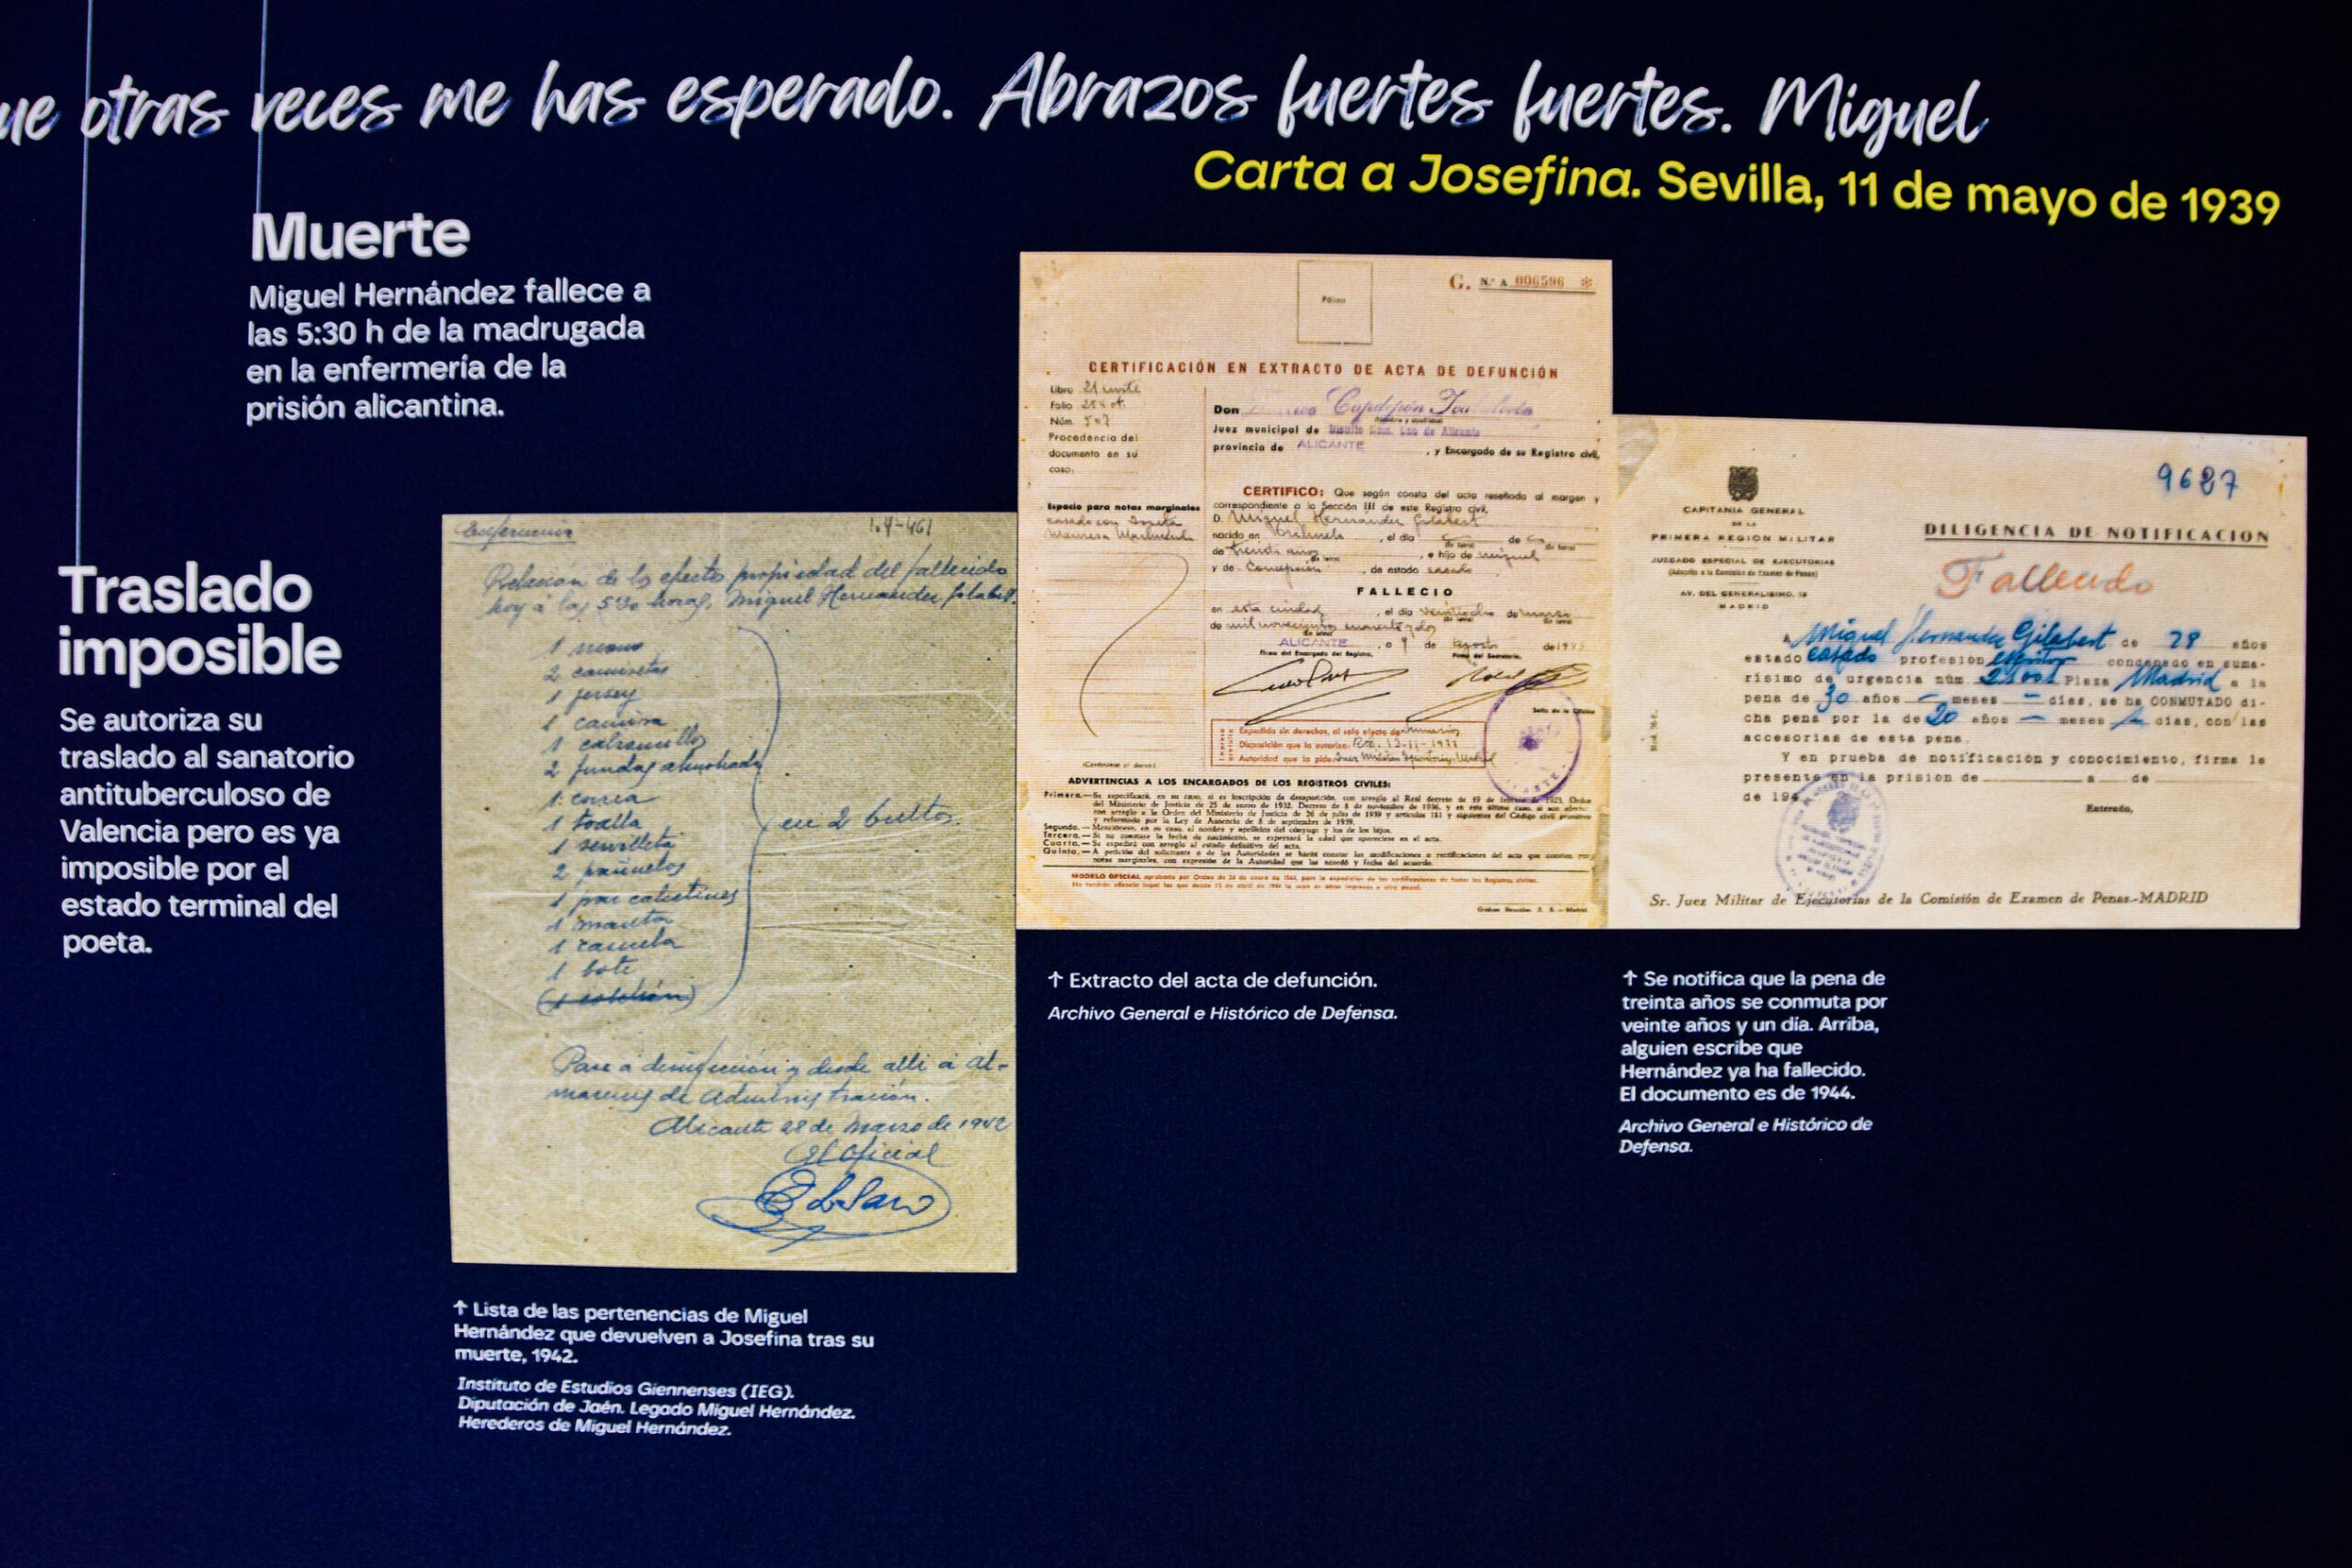 ue otras veces me has esperado. Abrazos fuertes fuertes. Miguel
Carta a Josefina. Sevilla, 11 de mayo de 1939
Muerte
Miguel Hernández fallece a
las 5:30 h de la madrugada
en la enfermería de la
prisión alicantina.
Traslado
imposible
Se autoriza su
traslado al sanatorio
antituberculoso de
Valencia pero es ya
imposible por el
estado terminal del
poeta.
Relación de los efectos propiedad del fallecido
hoy á las 5'30 horas, Miguel Hernandez Gilabert.
1 mono
2 camisetas
1 jersey
1 camisa
1 calzoncillo
2 fundas almohada
1 correa
1 toalla
1 servilleta
2 pañuelos
1 par calcetines
1 manta
1 cazuela
1 bote
(1 colchón)
en 2 bultos.
Pase a desinfección y desde alli á Al-
macenes de Administración.
Alicante 28 de Marzo de 1942
El Oficial
↑ Lista de las pertenencias de Miguel
Hernández que devuelven a Josefina tras su
muerte, 1942.
Instituto de Estudios Giennenses (IEG).
Diputación de Jaén. Legado Miguel Hernández.
Herederos de Miguel Hernández.
Póliza
G. N.º A 006596
CERTIFICACIÓN EN EXTRACTO DE ACTA DE DEFUNCIÓN
Libro 21
Folio 254
Núm. 507
Procedencia del
documento en su
caso:
Espacio para notas marginales
casado con Josefa
Manresa
Don Capdepón
Juez municipal de Distrito Núm. Uno de Alicante
provincia de ALICANTE, y Encargado de su Registro civil,
CERTIFICO: Que según consta del acta reseñada al margen y
correspondiente a la Sección III de este Registro civil,
D. Miguel Hernandez Gilabert
nacido en Orihuela, el día de
de treinta años, e hijo de Miguel
y de Concepción, de estado casado
FALLECIO
en esta ciudad, el día veintiocho de marzo
de mil novecientos cuarenta y dos
ALICANTE, a 9 de Agosto de 19
Firma del Encargado del Registro. Firma del Secretario.
Sello de la Oficina
Expedida sin derechos, al solo efecto de
Disposición que la autoriza:
Autoridad que la pide:
ADVERTENCIAS A LOS ENCARGADOS DE LOS REGISTROS CIVILES:
↑ Extracto del acta de defunción.
Archivo General e Histórico de Defensa.
9687
CAPITANIA GENERAL
DE LA
PRIMERA REGION MILITAR
JUZGADO ESPECIAL DE EJECUTORIAS
(Adscrito a la Comisión de Examen de Penas)
AV. DEL GENERALISIMO, 19
MADRID
DILIGENCIA DE NOTIFICACION
Fallecido
A Miguel Hernandez Gilabert de 29 años
estado casado profesión escritor condenado en suma-
rísimo de urgencia núm 21001 Plaza Madrid a la
pena de 30 años — meses — días, se ha CONMUTADO di-
cha pena por la de 20 años — meses 1 días, con las
accesorias de esta pena.
Y en prueba de notificación y conocimiento, firma la
presente en la prision de a de
de 194
Enterado,
Sr. Juez Militar de Ejecutorias de la Comisión de Examen de Penas.-MADRID
↑ Se notifica que la pena de
treinta años se conmuta por
veinte años y un día. Arriba,
alguien escribe que
Hernández ya ha fallecido.
El documento es de 1944.
Archivo General e Histórico de
Defensa.